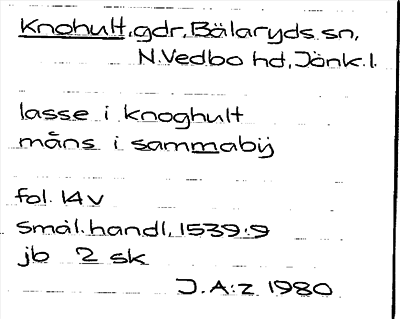 Knohult, gdr, Bälaryds sn,
N. Vedbo hd, Jönk. l.
lasse i knoghult
måns i sammabÿ
fol. 14 v
smål. handl. 1539:9
jb 2 sk
J. A:z 1980